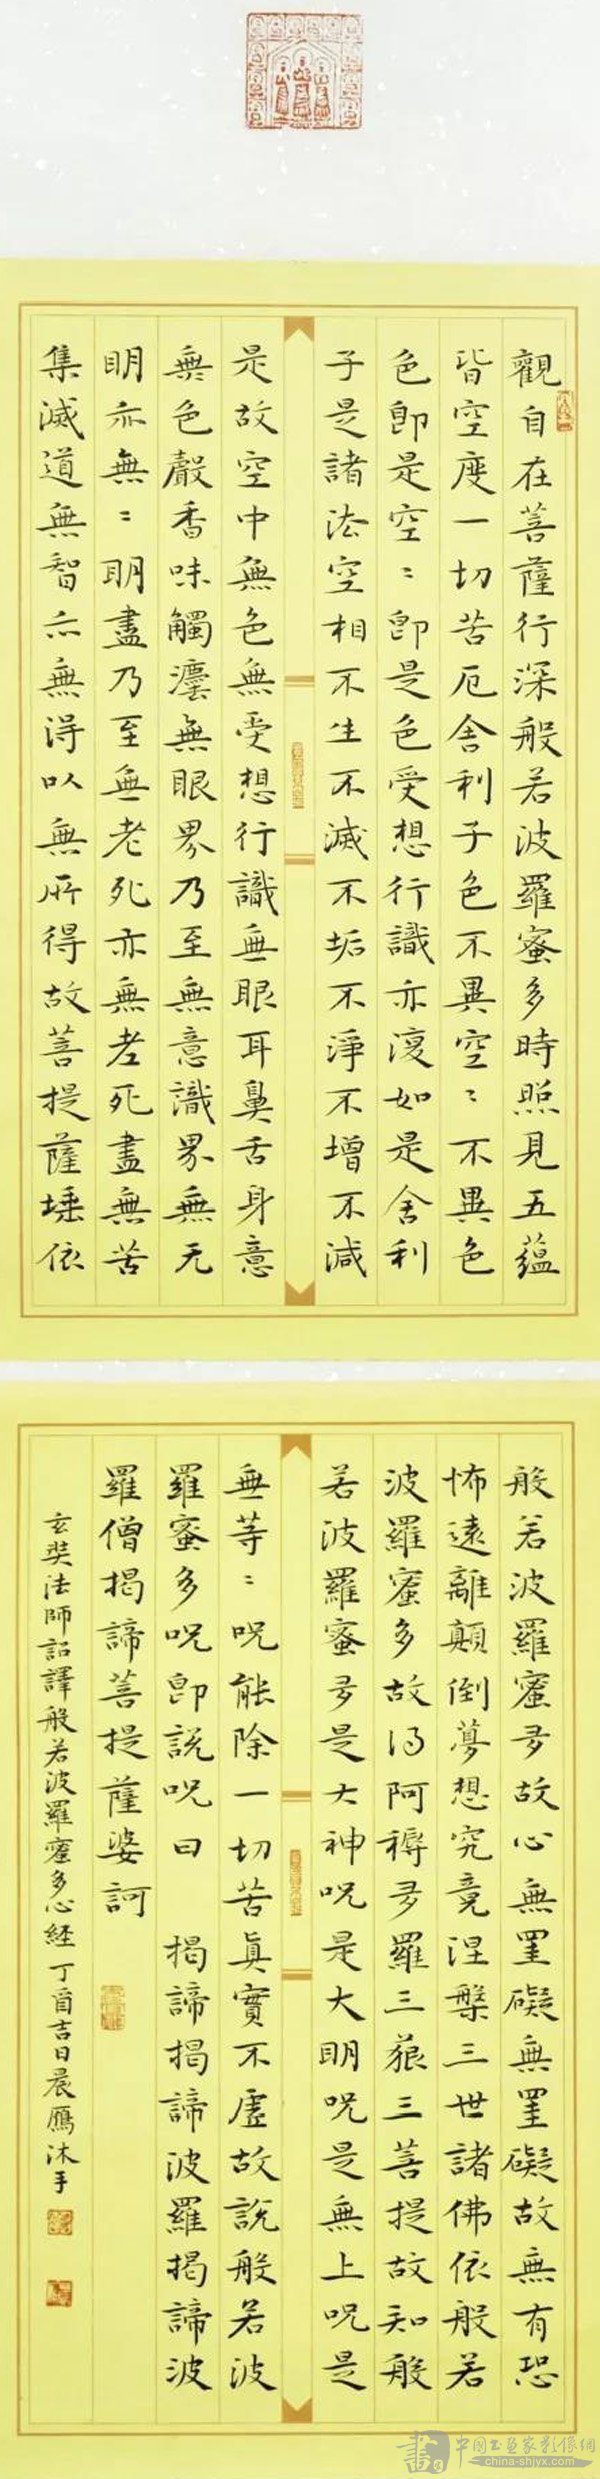 觀自在菩薩行深般若波羅蜜多時照見五蘊
皆空度一切苦厄舍利子色不異空〻不異色
色即是空〻即是色受想行識亦復如是舍利
子是諸法空相不生不滅不垢不淨不增不減
是故空中無色無受想行識無眼耳鼻舌身意
無色聲香味觸塵無眼界乃至無意識界無无
明亦無〻明盡乃至無老死亦無老死盡無苦
集滅道無智亦無得以無所得故菩提薩埵依
般若波羅蜜多故心無罣礙無罣礙故無有恐
怖遠離顛倒夢想究竟涅槃三世諸佛依般若
波羅蜜多故得阿耨多羅三藐三菩提故知般
若波羅蜜多是大神呪是大明呪是無上呪是
無等〻呪能除一切苦真實不虛故說般若波
羅蜜多呪即說呪曰 揭諦揭諦波羅揭諦波
羅僧揭諦菩提薩婆訶
玄奘法師詔譯般若波羅蜜多心経丁酉吉日晨鴈沐手
書
中国书画家影像網
china-shjyx.com